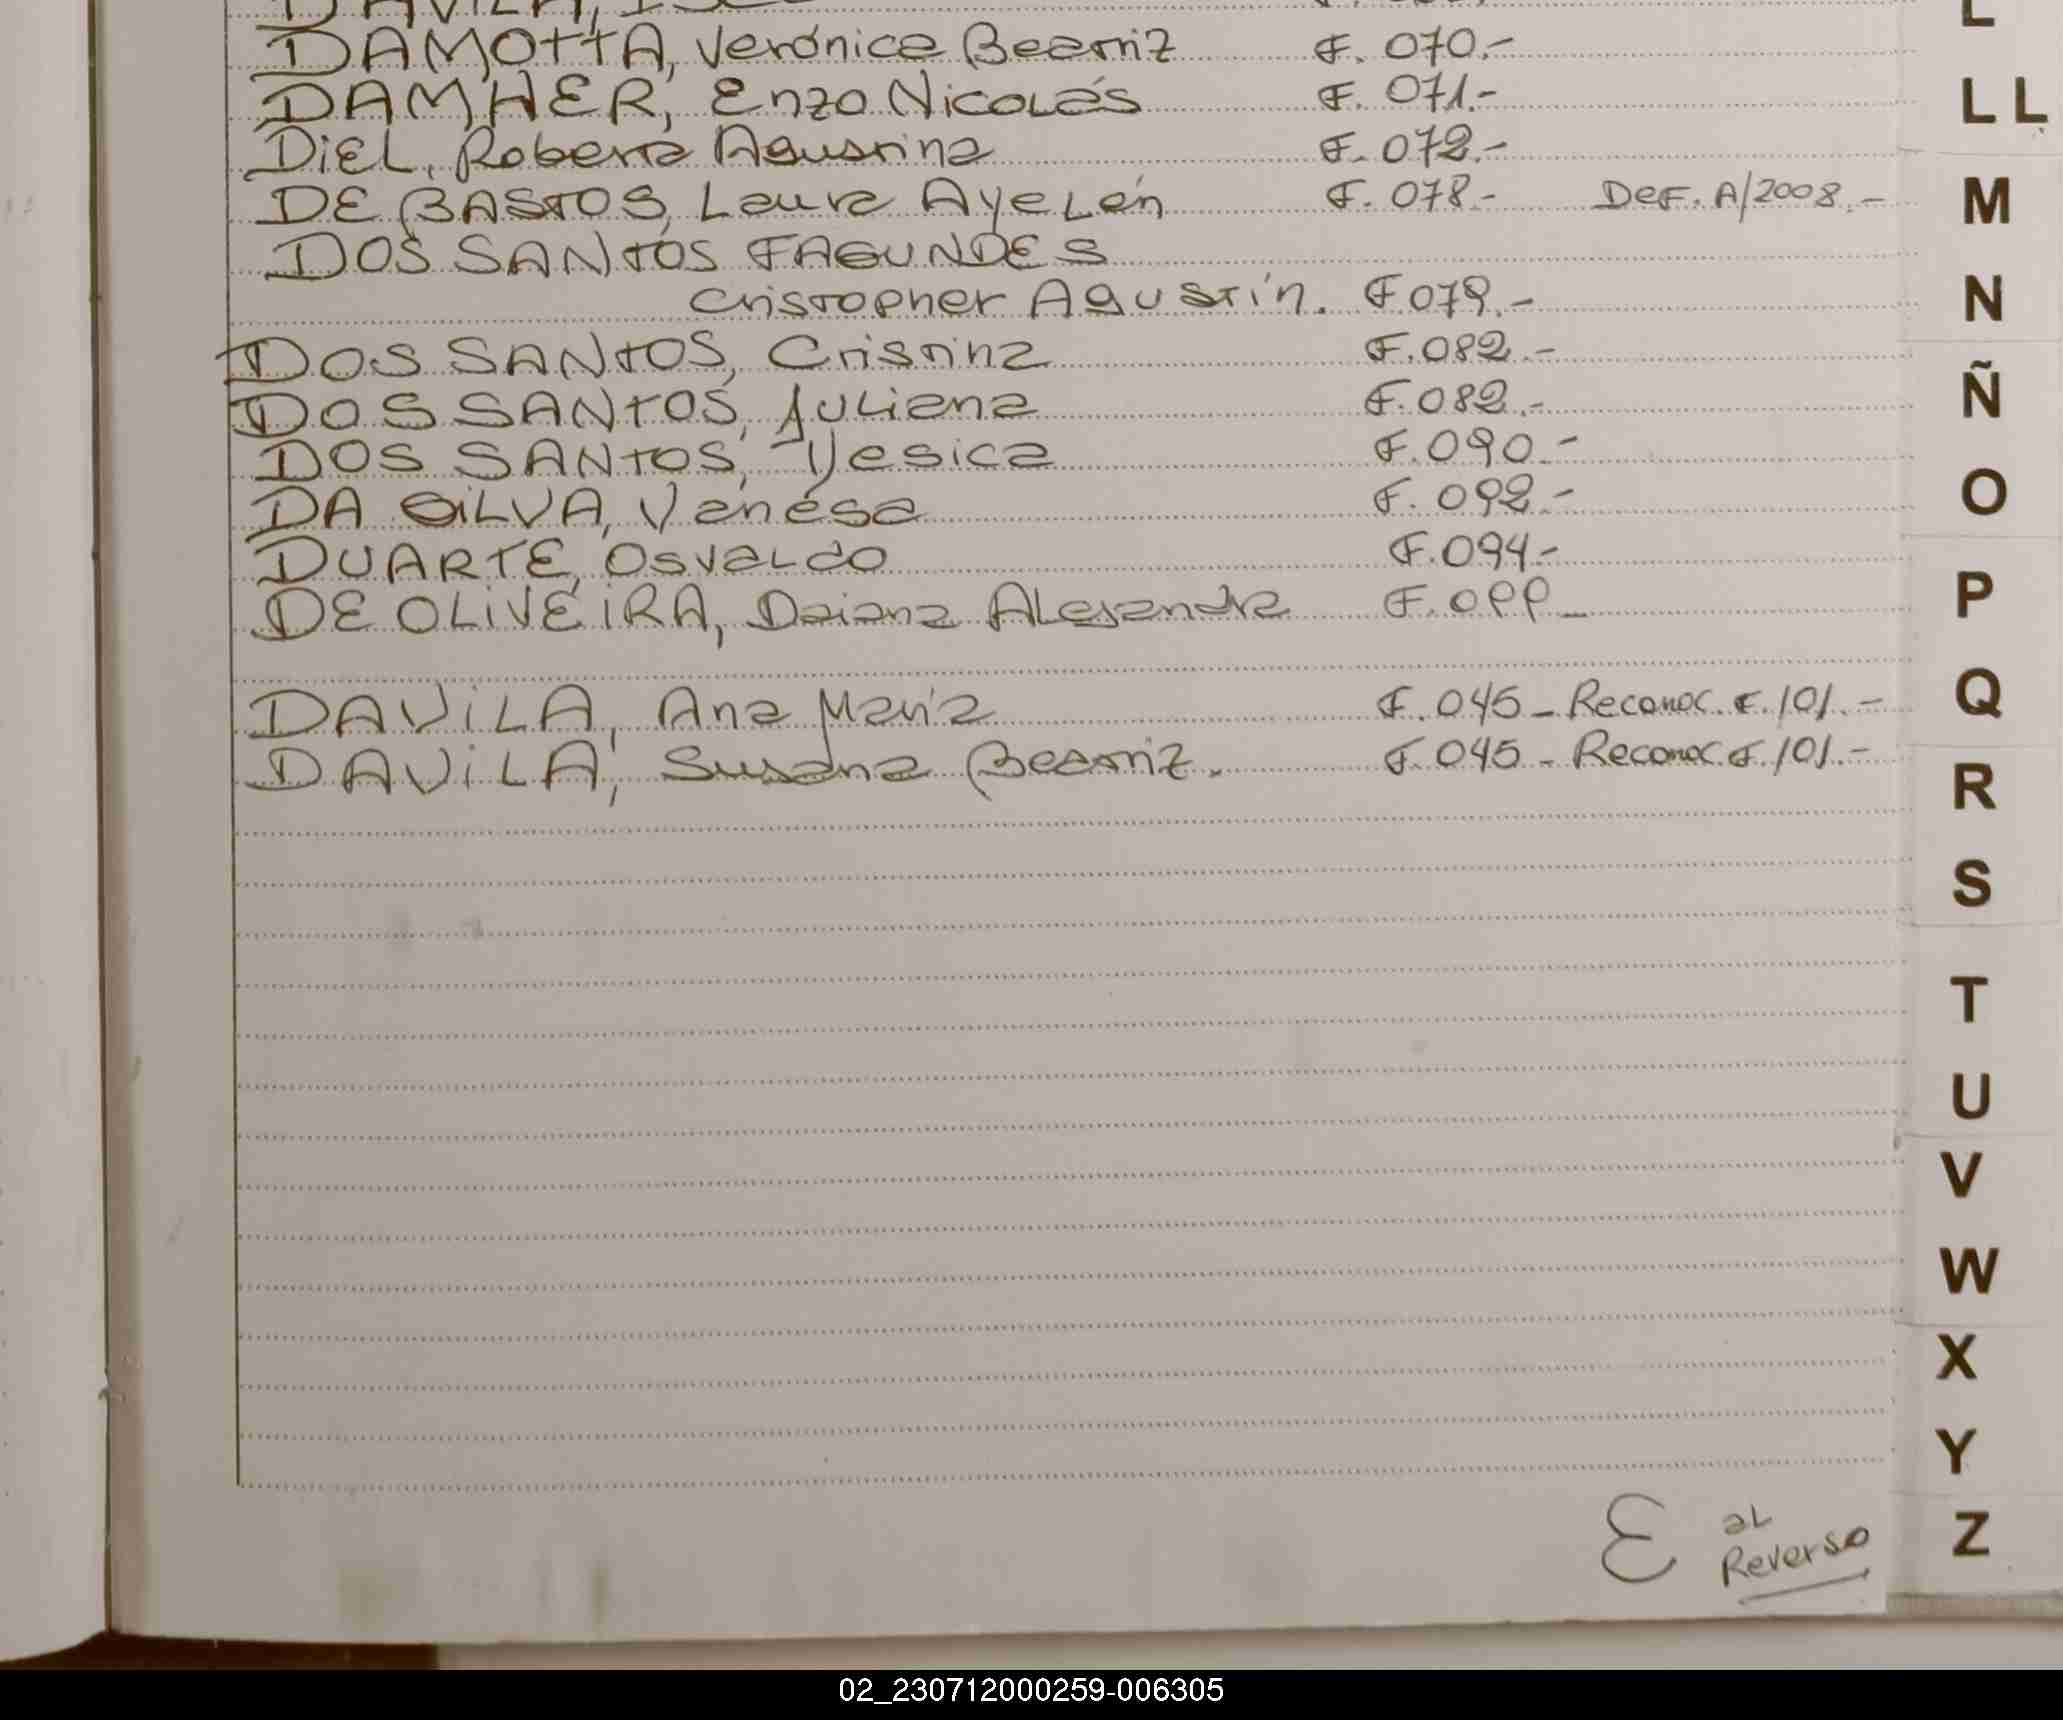 DAVILA,
DAMOTTA, Verónica Beatriz F. 070.-
DAMHER, Enzo Nicolás F. 071.-
DiEL, Roberta Agustina F. 072.-
DE BASTOS, Laura Ayelén F. 078.- DeF. A/2008.-
DOS SANTOS FAGUNDES
Cristopher Agustín. F 079.-
DOS SANTOS, Cristina F. 082.-
DOS SANTOS, Juliana F. 082.-
DOS SANTOS, Yesica F. 090.-
DA SiLVA, Vanesa F. 092.-
DUARTE, Osvaldo F. 094.-
DE OLiVEiRA, Daiana Alejandra F. 099_
DAViLA, Ana María F. 045 - Reconoc. F. 101.-
DAViLA, Susana Beatriz. F. 045 - Reconoc. F. 101.-
E al
Reverso
L
LL
M
N
Ñ
O
P
Q
R
S
T
U
V
W
X
Y
Z
02_230712000259-006305